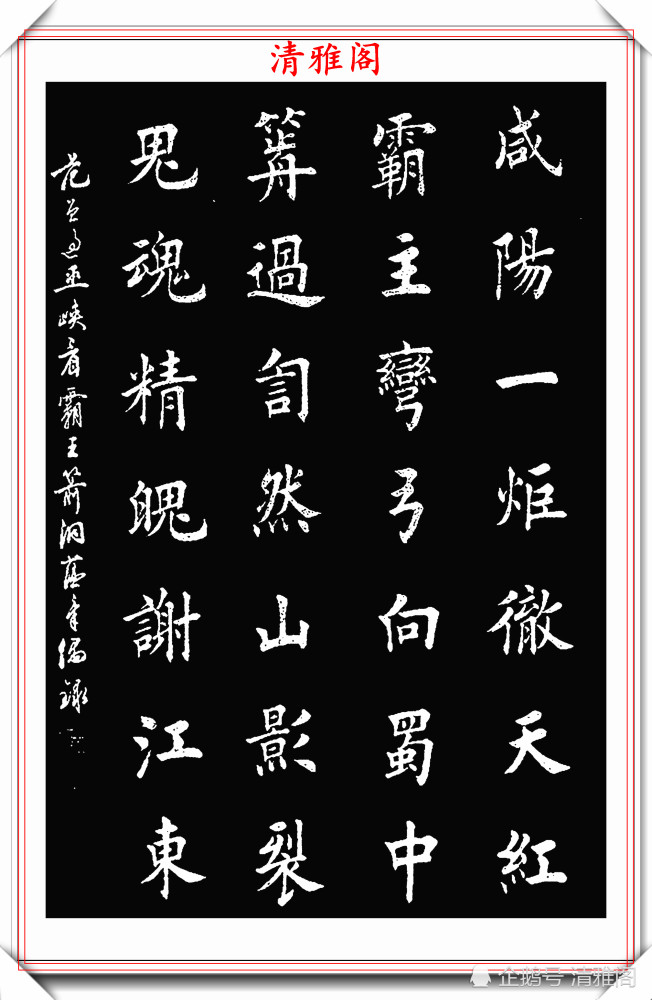 清雅阁
咸陽一炬徹天紅
霸主彎弓向蜀中
箭過訇然山影裂
鬼魂精魄謝江東
范曾過巫峽看霸王箭洞 偶錄
企鹅号 清雅阁